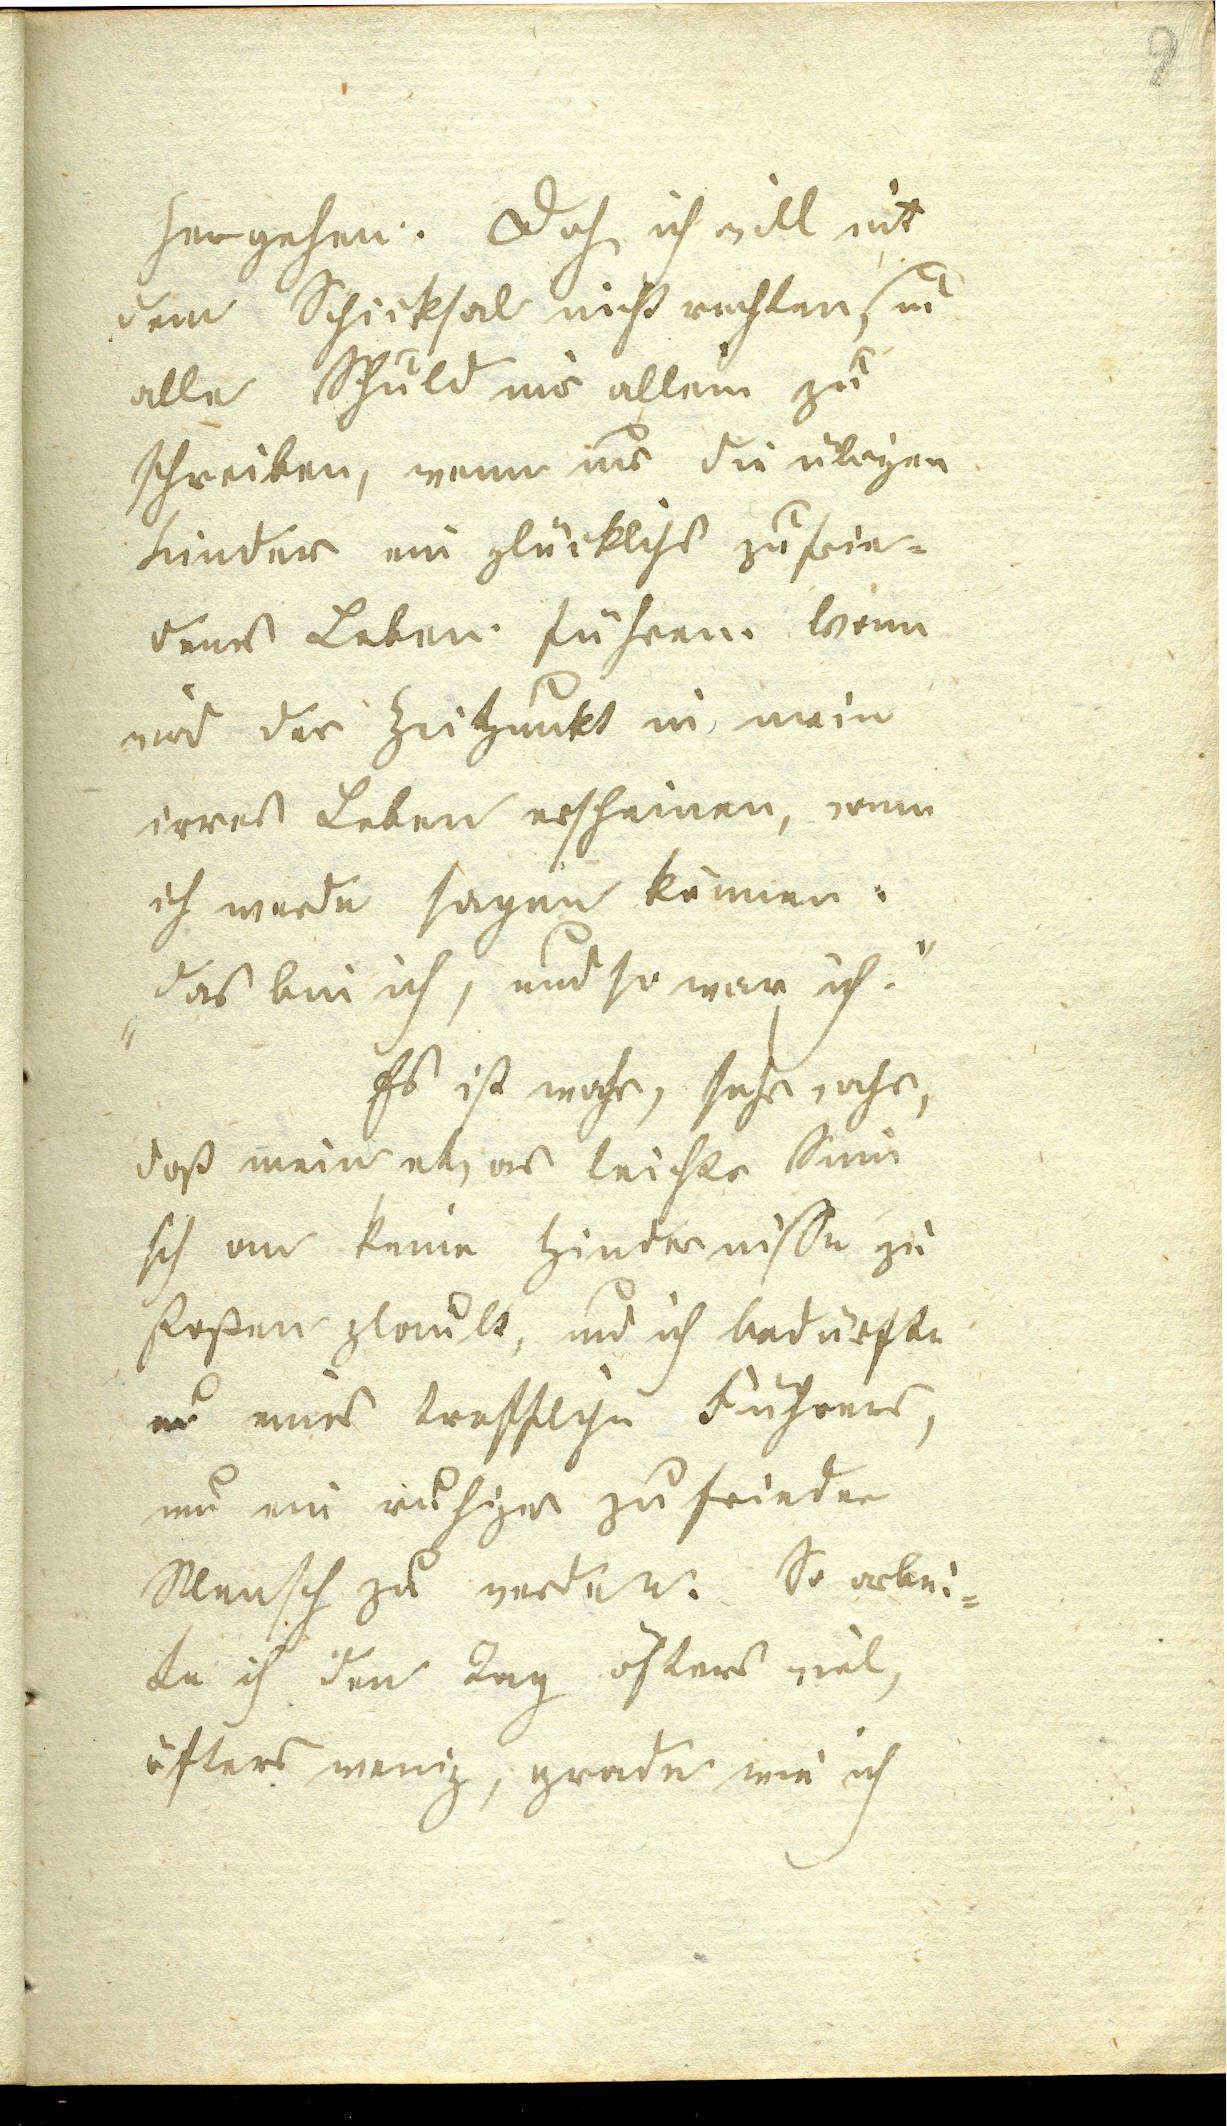 9
hergehen. Doch ich will mit
dem Schicksal nicht rechten, u
alle Schuld mir allein zu
schreiben, wenn nur die übrigen
Kinder ein glücklichs zufrie-
denes Leben führen. Wann
wird der Zeitpunkt in mein
irres Leben erscheinen, wenn
ich werde sagen können:
„das bin ich, und so war ich."
Es ist wahr, sehr wahr,
daß mein etwas leichter Sinn
sich an keine Hindernisse zu
stoßen glaubt, und ich bedürfte
nur eines trefflichen Führers,
um ein ruhiger zufriedner
Mensch zu werden. So arbei-
te ich den Tag öfters viel,
öfters wenig, grade wie ich